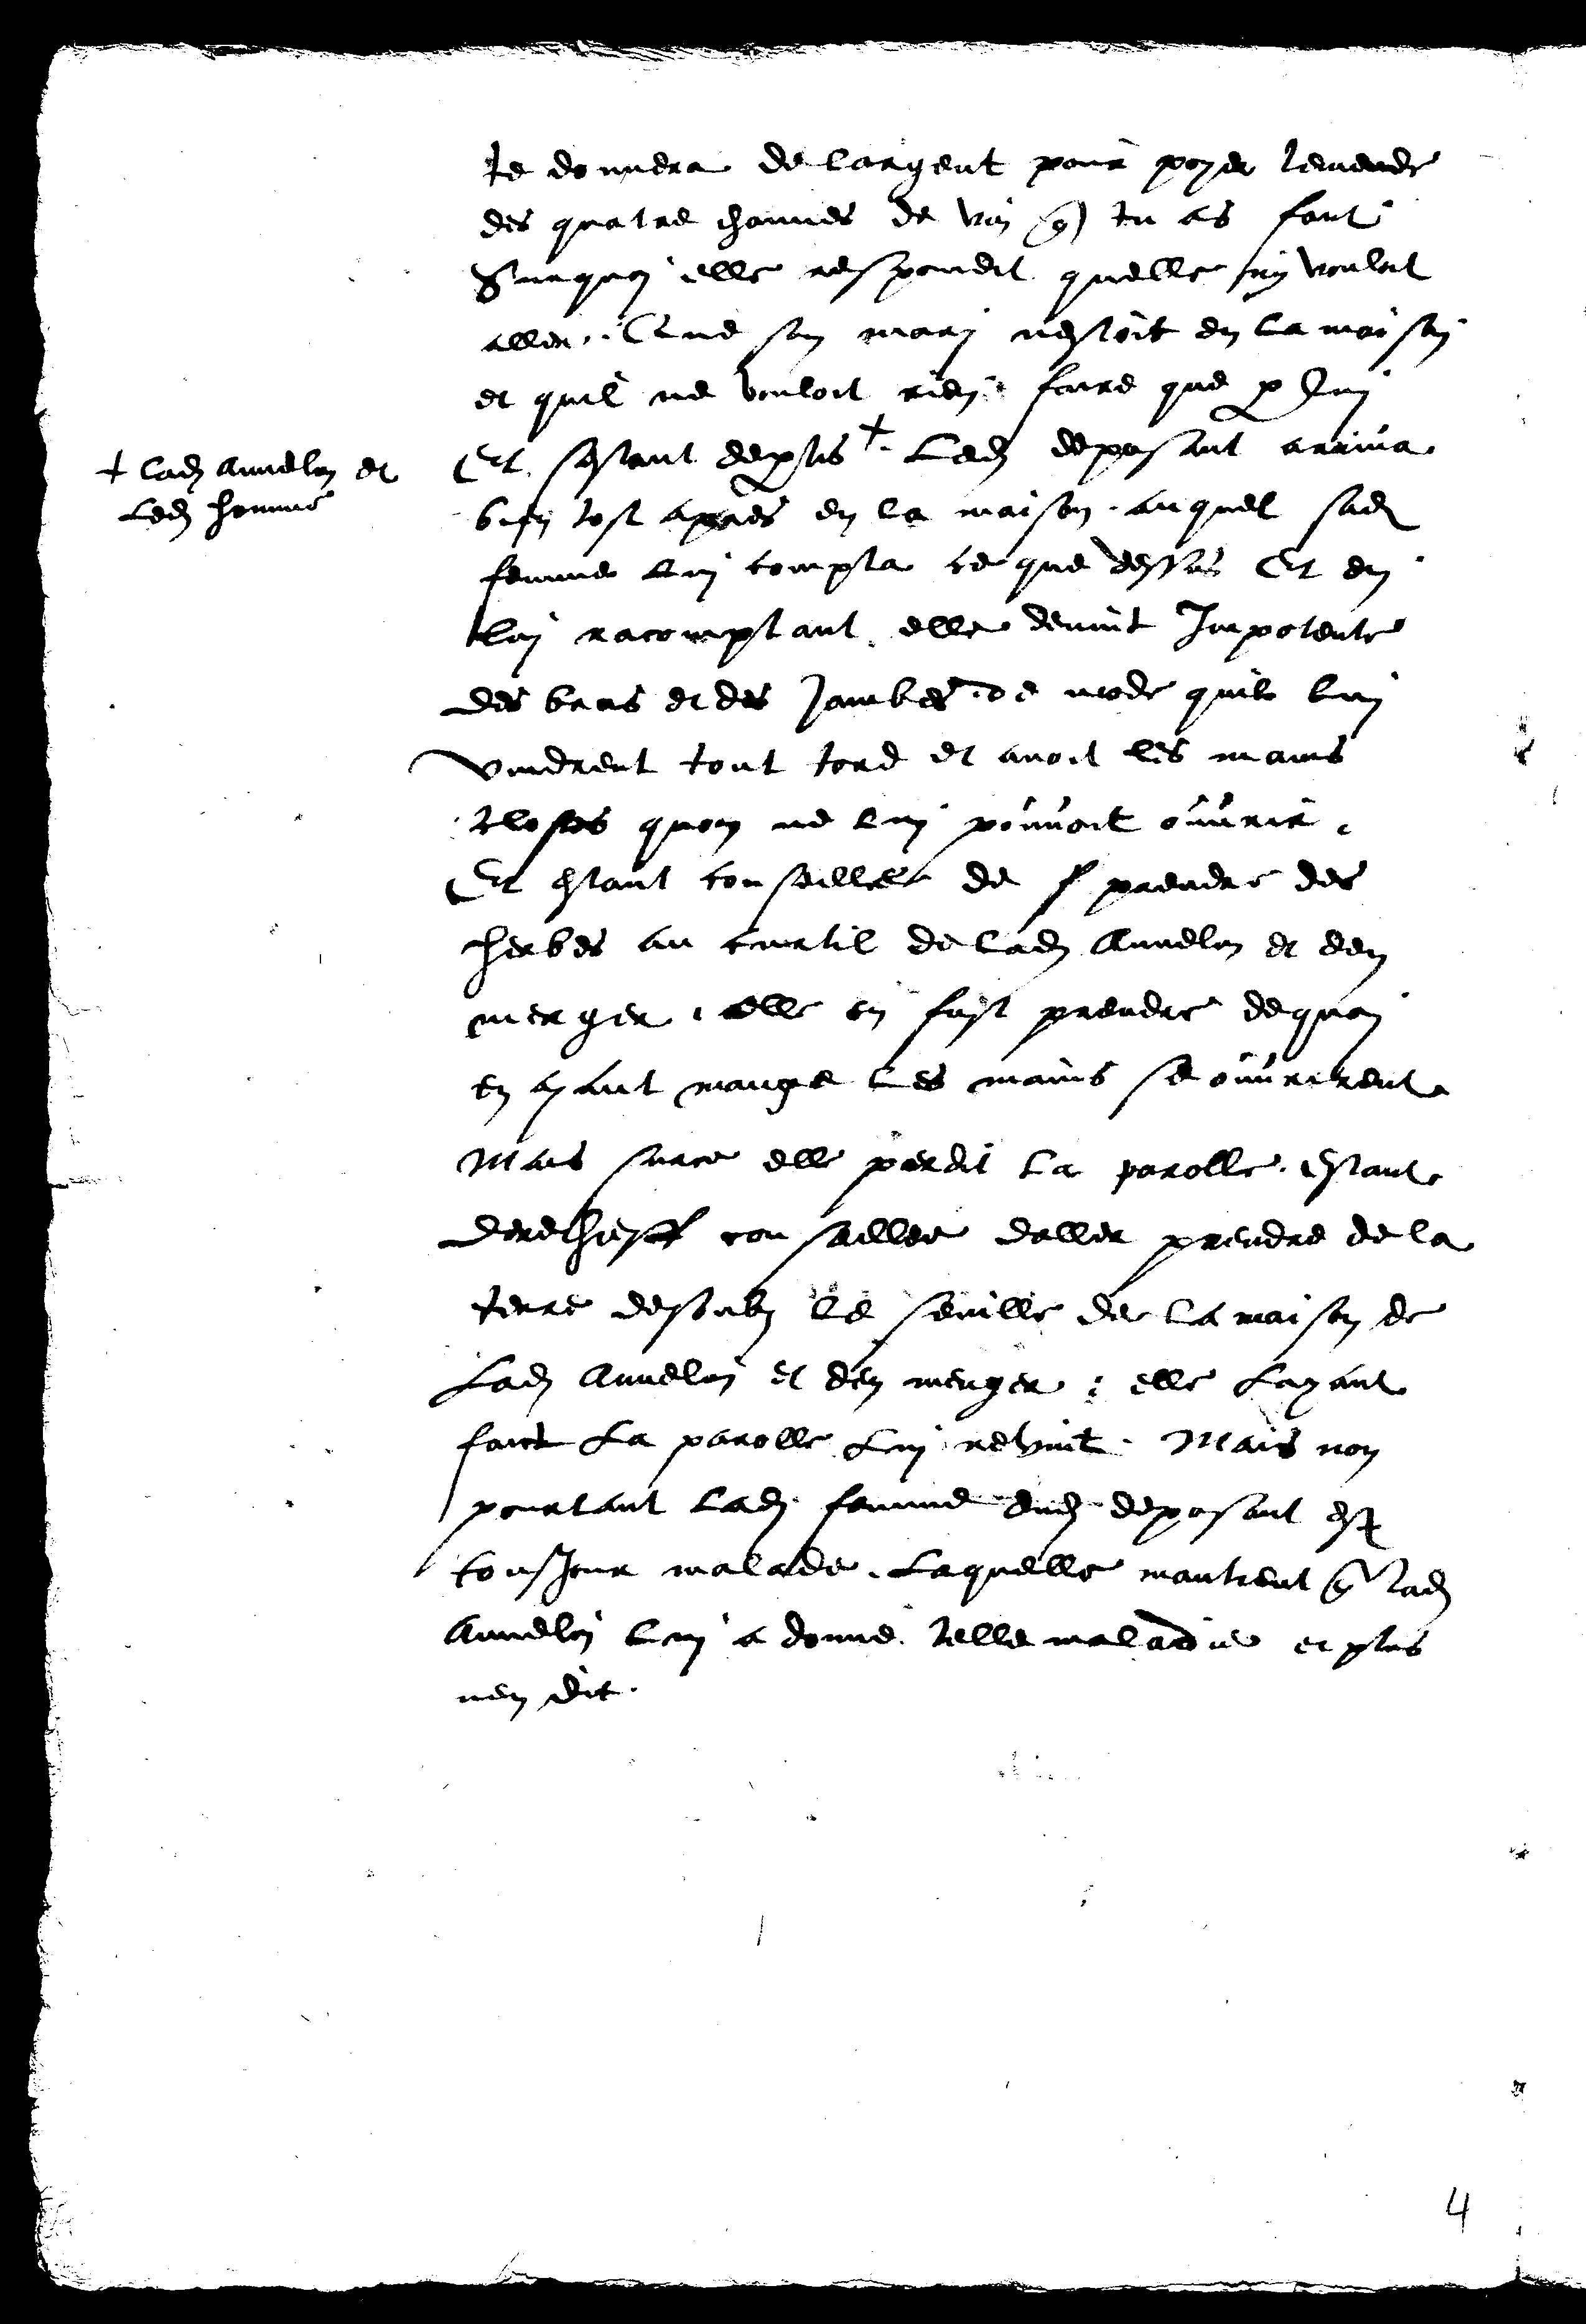 te donnera de largent pour poyer lemende
des quatre channes de vin q) tu as fait
Surquoy elle respondit quelle ny vouloit
aller. Que son mary nestoit en la maison
et quil ne vouloit rien faire que p luy
Et sestant deptis + Led deposant arriva
+ Lad Annelon et
Led homme
bien tost apres en la maison auquel sad
femme luy compta ce que dessus Et en
luy racomptant elle devint Impotente
des bras et des Jambes de mode quilz luy
vindrent tout tord et avoit les mains
closes quon ne luy pouvoit ouvrir.
Et estant conseillee de prendre des
herbes au curtil de lad Annelon et den
menger, elle en fist prendre dequoy
en ayant mange les mains se ouvrirent
Mais surce elle perdit la parolle. Estant
derechieff conseillee daller prendre de la
terre desoubz le seuille de la maison de
Lad Annelon et den menger: elle Layant
faict La parolle Luy revint. Mais non
pourtant lad femme dud deposant est
tousJour malade. Laquelle maintient q lad
Annelon luy a donne telle maladie et plus
nen dit.
4